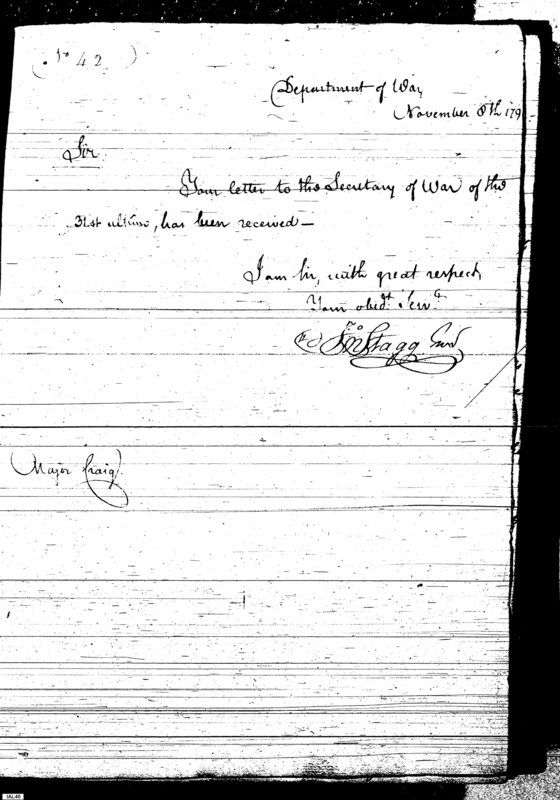 (No 42)
Department of War,
November 8th 179
Sir
Your letter to the Secretary of War of the
31st ultimo, has been received—
I am Sir, with great respect,
Your obedt. Servt.
Jno Stagg Junr.
Major Craig
IAL40